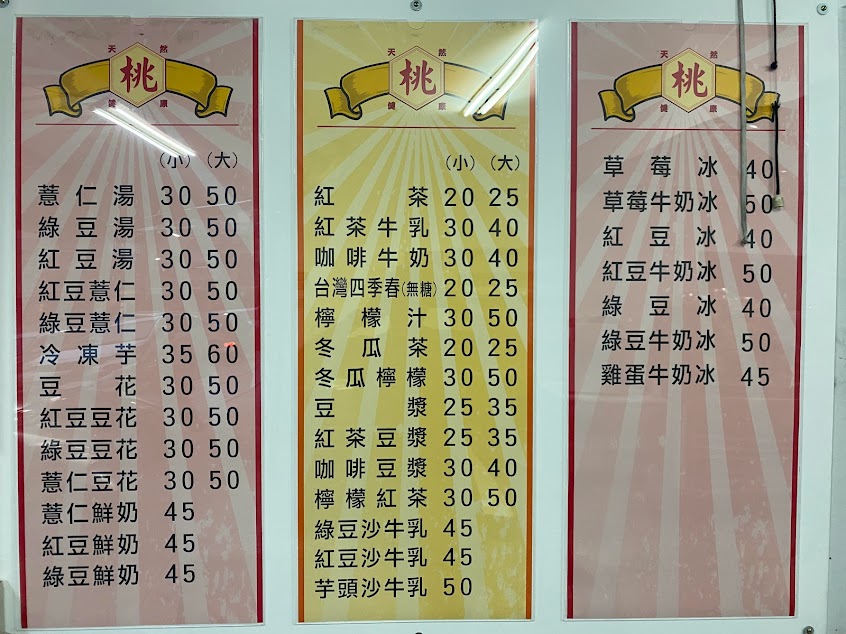 天 然
桃
健 康
(小) (大)
薏仁湯 30 50
綠豆湯 30 50
紅豆湯 30 50
紅豆薏仁 30 50
綠豆薏仁 30 50
冷凍芋 35 60
豆花 30 50
紅豆豆花 30 50
綠豆豆花 30 50
薏仁豆花 30 50
薏仁鮮奶 45
紅豆鮮奶 45
綠豆鮮奶 45
天 然
桃
健 康
(小) (大)
紅茶 20 25
紅茶牛乳 30 40
咖啡牛奶 30 40
台灣四季春(無糖) 20 25
檸檬汁 30 50
冬瓜茶 20 25
冬瓜檸檬 30 50
豆漿 25 35
紅茶豆漿 25 35
咖啡豆漿 30 40
檸檬紅茶 30 50
綠豆沙牛乳 45
紅豆沙牛乳 45
芋頭沙牛乳 50
天 然
桃
健 康
草莓冰 40
草莓牛奶冰 50
紅豆冰 40
紅豆牛奶冰 50
綠豆冰 40
綠豆牛奶冰 50
雞蛋牛奶冰 45